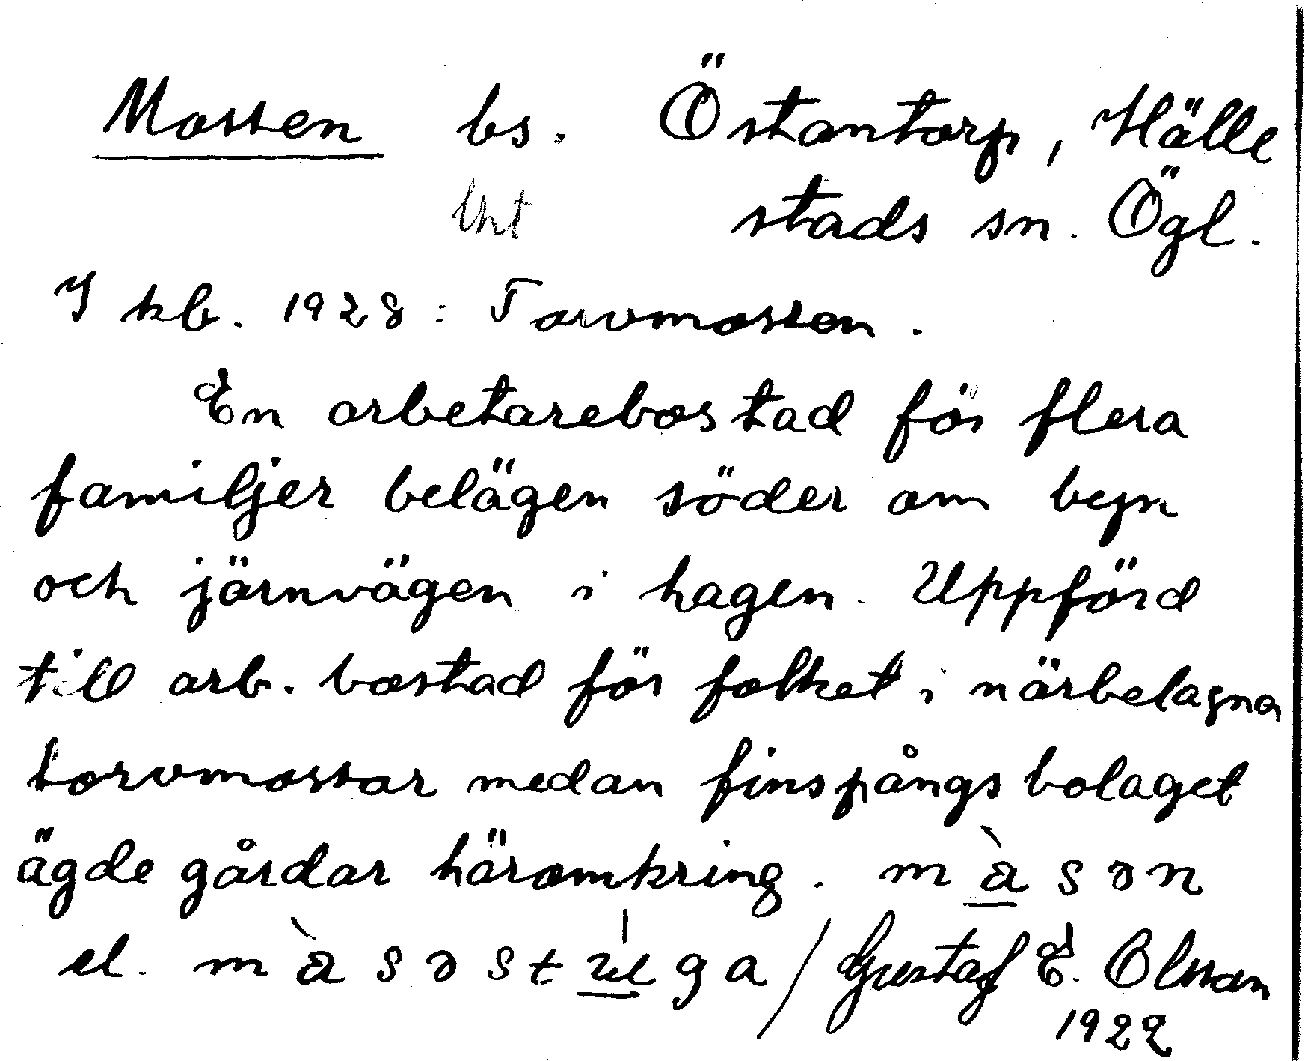 Mossen bs. Östantorp, Hälle
stads sn. Ögl.
I kb. 1928: Torvmossen.
En arbetarebostad för flera
familjer belägen söder om byn
och järnvägen i hagen. Uppförd
till arb. bostad för folket i närbelagna
torvmossar medan finspångsbolaget
ägde gårdar häromkring. màsən
el. màsəstuga / Gustaf E. Olsson
1922